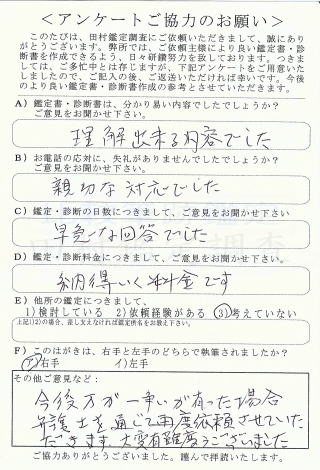 ＜アンケートご協力のお願い＞
このたびは、田村鑑定調査にご依頼いただきまして、誠にあり
がとうございます。弊所では、ご依頼主様により良い鑑定書・診
断書を作成できるよう、日々研鑽努力を致しております。つきま
しては、ご多忙中とは存じますが、下記アンケートをご用意いた
しましたので、ご記入の後、ご返送いただければ幸いです。今後
のより良い鑑定書・診断書作成の参考とさせていただきます。
A）鑑定書・診断書は、分かり易い内容でしたでしょうか？
ご意見をお聞かせ下さい。
理解出来る内容でした
B）お電話の応対に、失礼がありませんでしたでしょうか？
ご意見をお聞かせ下さい。
親切な対応でした
C）鑑定・診断の日数につきまして、ご意見をお聞かせ下さい
早急な回答でした
D）鑑定・診断料金につきまして、ご意見をお聞かせ下さい
納得いく料金です
E）他所の鑑定につきまして、
1）検討している 2）依頼経験がある 3）考えていない
上記1）2）の場合、差し支えなければ鑑定所名をお教え下さい。
F）このはがきは、右手と左手のどちらで執筆されましたか？
ア）右手 イ）左手
その他ご意見など：
今後万が一争いが有った場合
弁護士を通じて再度依頼させていた
だきます。大変有難度うございました
ご協力ありがとうございました。謹んで拝読いたします。